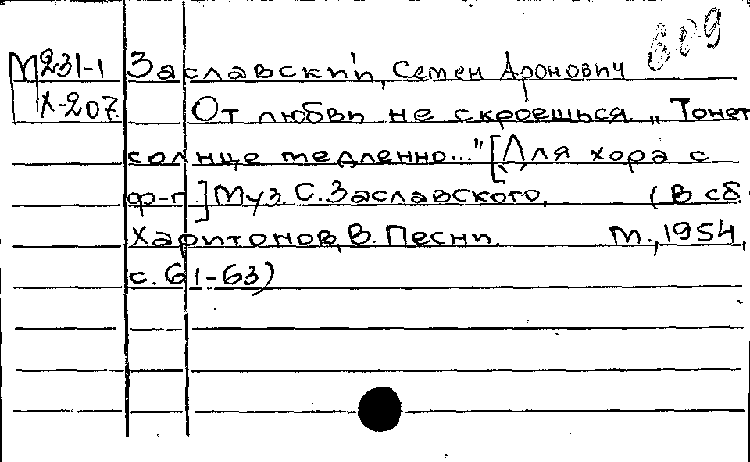 609
М231-1 Заславский, Семен Аронович
Х-207 От любви не скроешься „Тонет
солнце медленно..." [Для хора с
ф-п] Муз. С. Заславского. (В сб.
Харитонов, В. Песни. М., 1954,
с. 61-63)